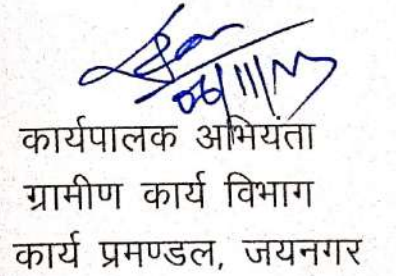 06/11/17
कार्यपालक अभियंता
ग्रामीण कार्य विभाग
कार्य प्रमण्डल, जयनगर